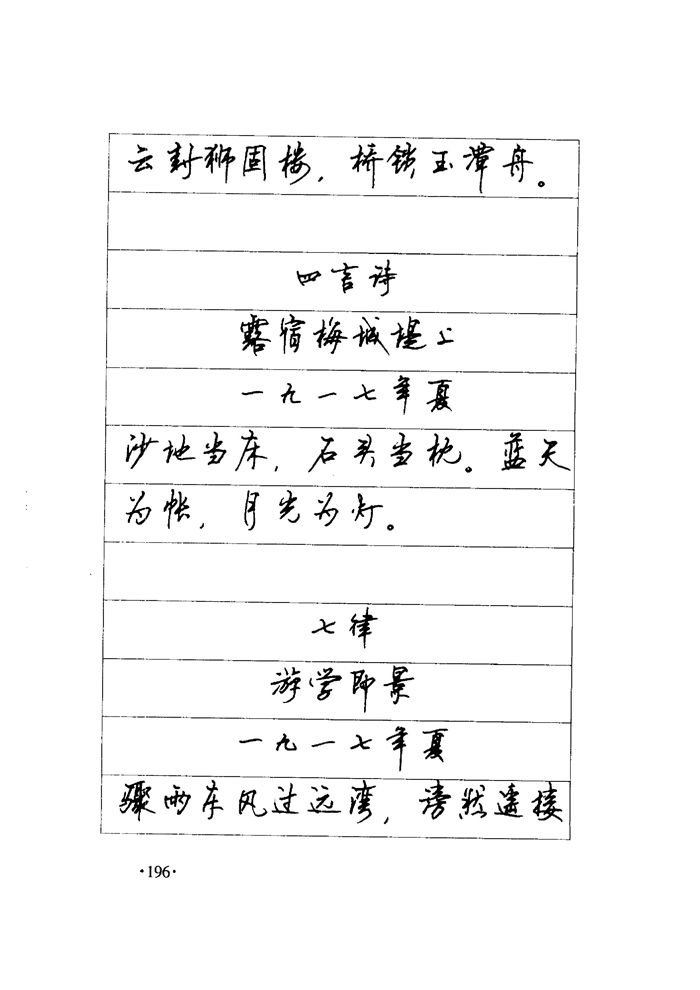 云封狮固楼，桥锁玉潭舟。
四言诗
露宿梅城堤上
一九一七年夏
沙地当床，石头当枕。蓝天
为帐，月光为灯。
七律
游学即景
一九一七年夏
骤雨东风过远湾，滂然遥接
·196·